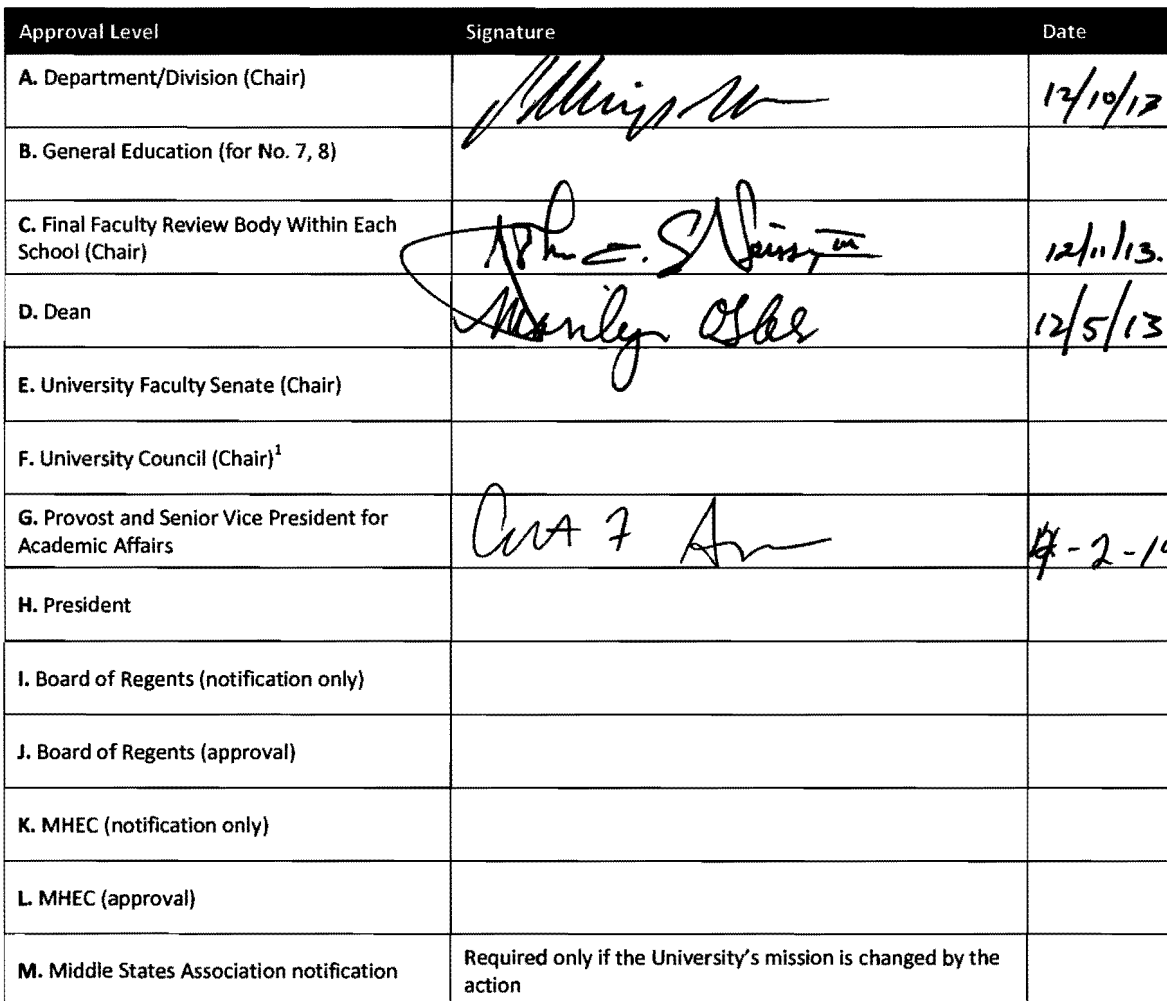 Approval Level Signature Date
A. Department/Division (Chair) 12/10/13
B. General Education (for No. 7, 8)
C. Final Faculty Review Body Within Each
School (Chair) 12/11/13.
D. Dean Marilyn 12/5/13
E. University Faculty Senate (Chair)
F. University Council (Chair)¹
G. Provost and Senior Vice President for
Academic Affairs
H. President
I. Board of Regents (notification only)
J. Board of Regents (approval)
K. MHEC (notification only)
L. MHEC (approval)
M. Middle States Association notification Required only if the University's mission is changed by the
action